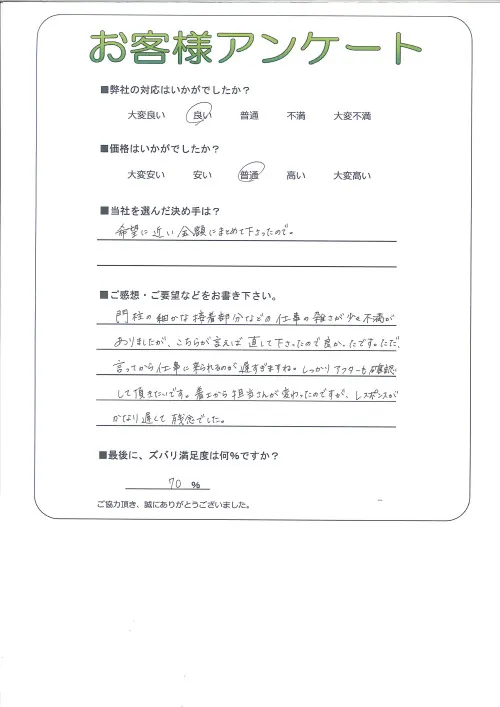 お客様アンケート
■弊社の対応はいかがでしたか？
大変良い 良い 普通 不満 大変不満
■価格はいかがでしたか？
大変安い 安い 普通 高い 大変高い
■当社を選んだ決め手は？
希望に近い金額にまとめて下さったので。
■ご感想・ご要望などをお書き下さい。
門柱の細かな接着部分などの仕事の雑さが少々不満が
ありましたが、こちらが言えば直して下さったので良かったです。ただ、
言ってから仕事に来られるのが遅すぎますね。しっかりアフターも確認
して頂きたいです。着工から担当さんが変わったのですが、レスポンスが
かなり遅くて残念でした。
■最後に、ズバリ満足度は何%ですか？
70 %
ご協力頂き、誠にありがとうございました。